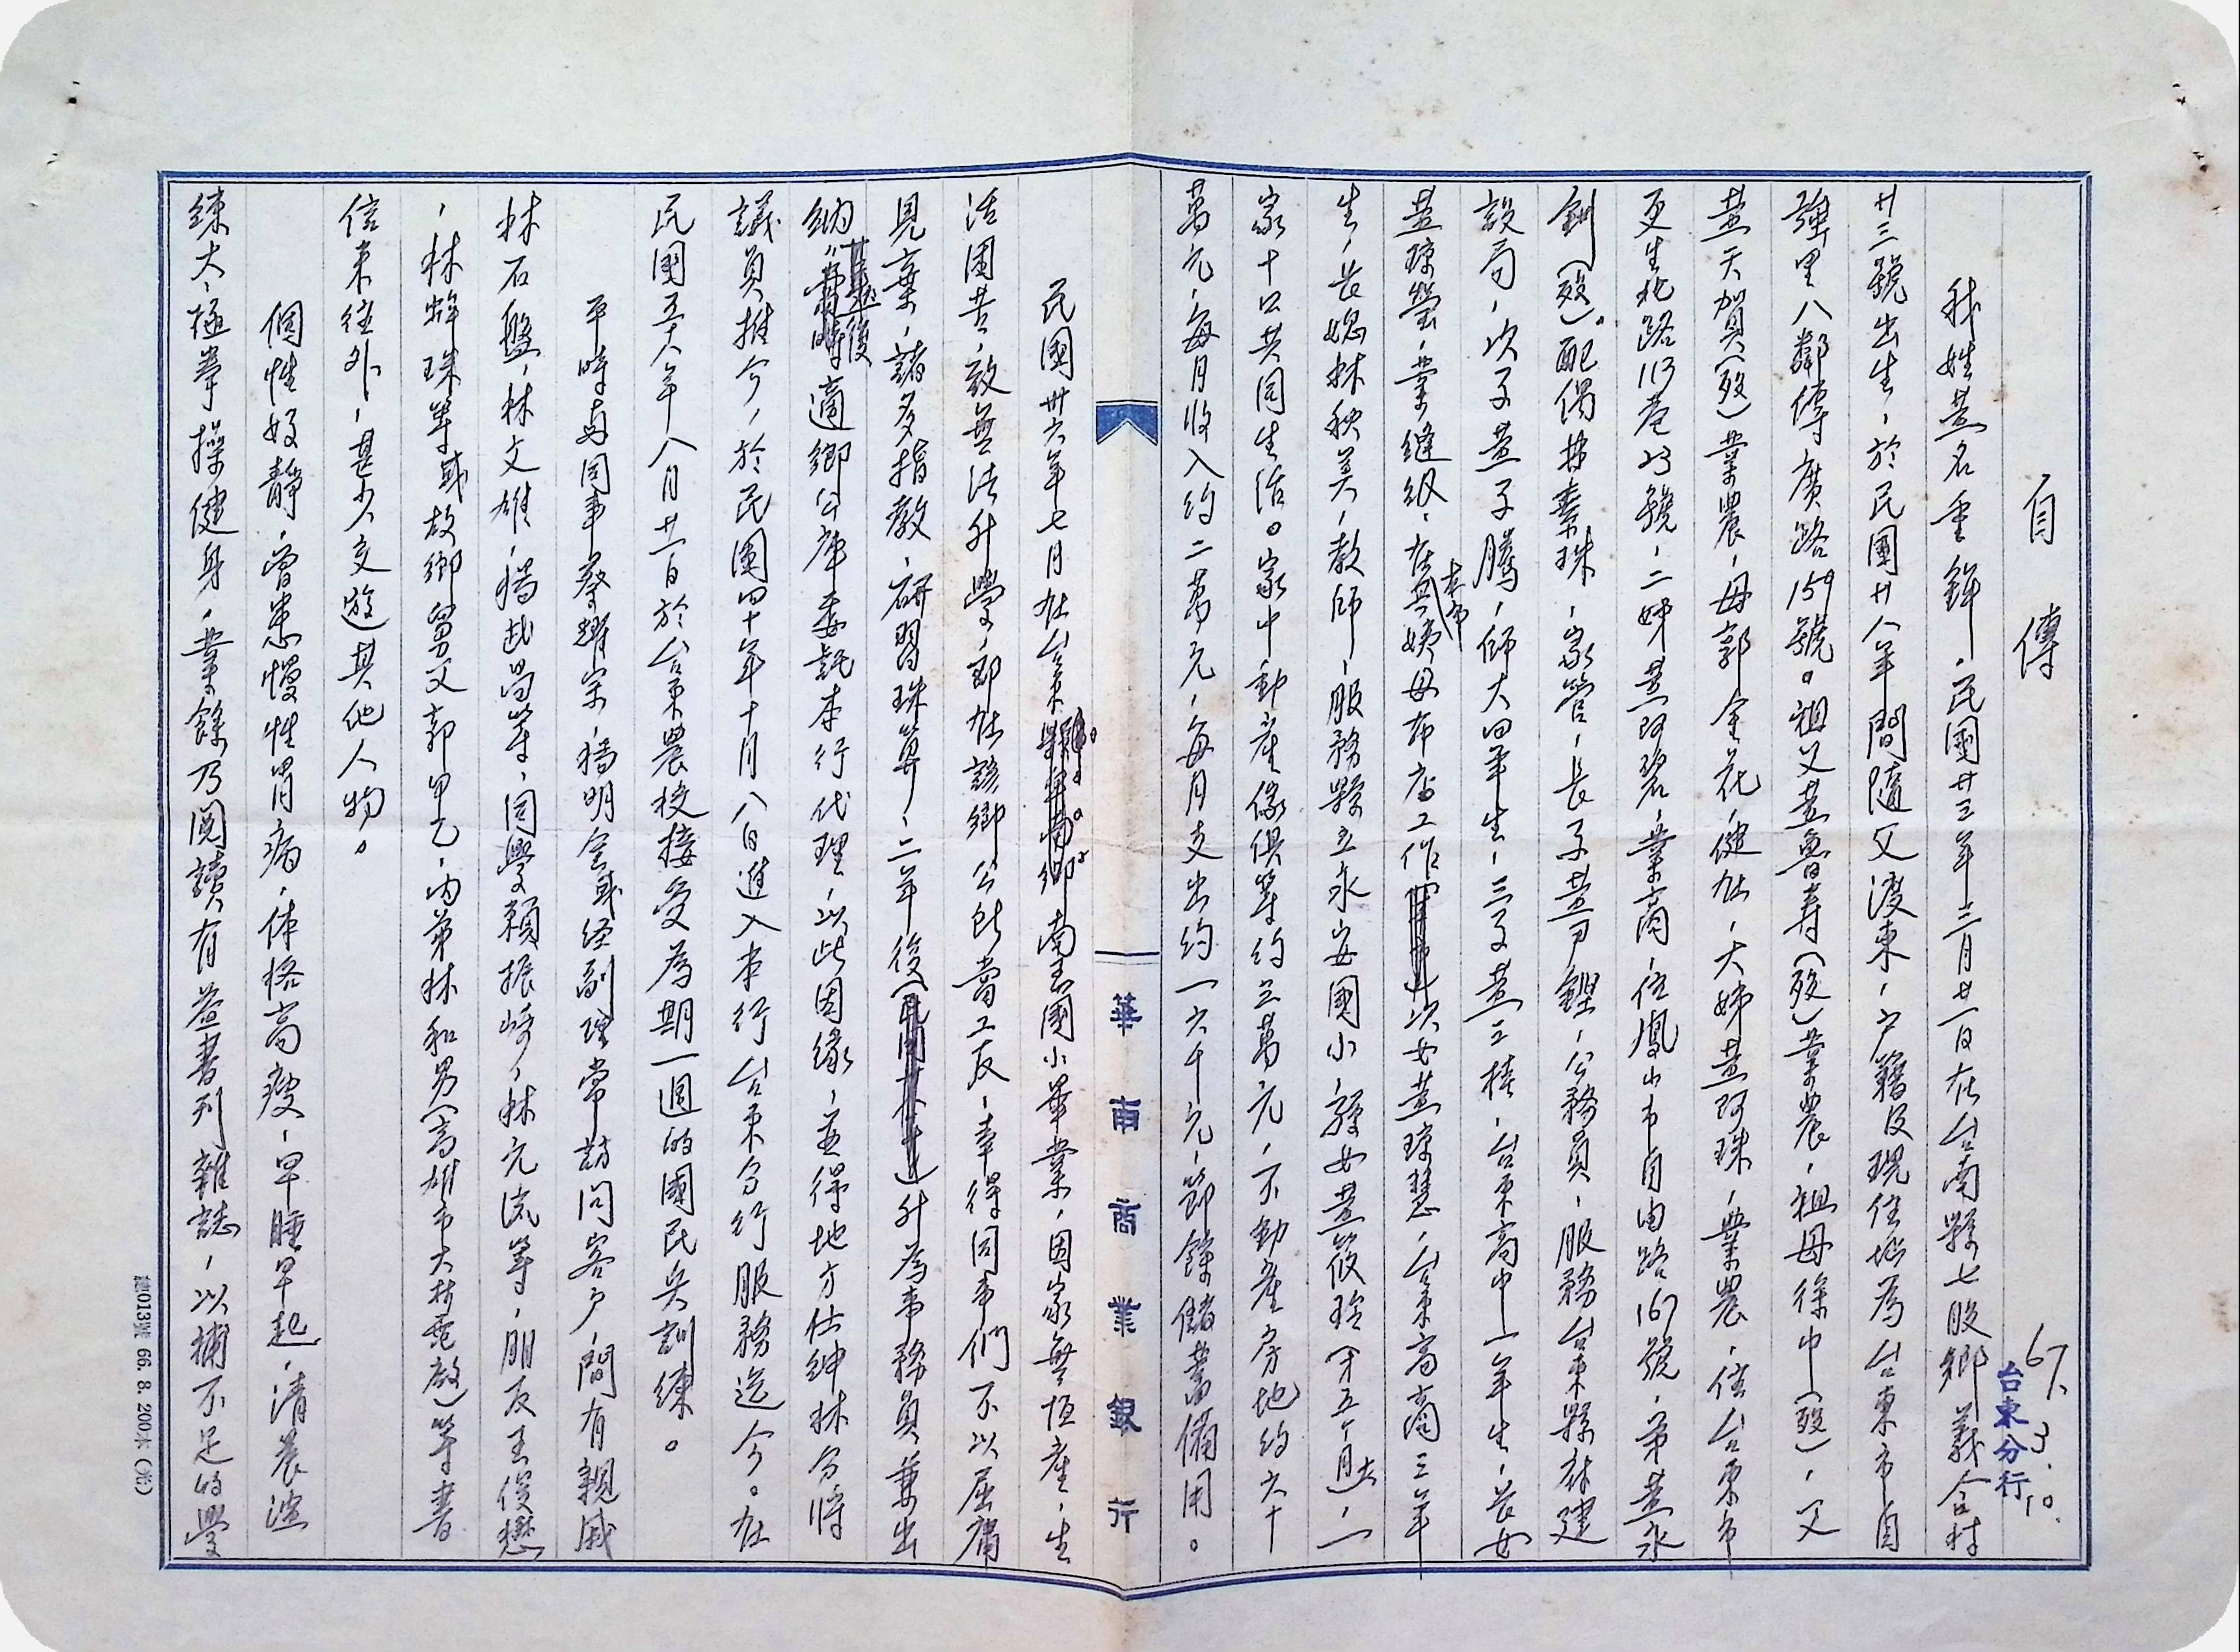 自傳
67.3.10.
台東分行
我姓黃名重鉾，民國廿三年三月廿一日在台南縣七股鄉義合村
廿三號出生，於民國廿八年間隨父渡東，戶籍及現住址為台東市自
強里八鄰傳廣路159號。祖父黃魯壽（歿）業農，祖母徐巾（歿），父
黃天賀（歿）業農，母郭金花，健在，大姊黃阿珠，業農，住台東市
更生北路113巷23號，二姊黃阿碧，業商，住鳳山市自由路167號，弟黃永
釧（歿）。配偶林素珠，家管，長子黃子鏗，公務員，服務台東縣林建
設局，次子黃子騰，師大四年生，三子黃立樁，台東高中一年生，長女
黃瓊瑩，業縫紉，在本市姨母布店工作，次女黃瓊慧，台東高商三年
生，長媳林秧美，教師，服務縣立永安國小，孫女黃筱玲（才五個月大），一
家十口共同生活。家中動產傢俱等約三萬元，不動產房地約六十
萬元，每月收入約二萬元，每月支出約一六千元，節餘儲蓄備用。
華南商業銀行
民國卅六年七月在台東南王國小畢業，因家無恆產，生
活困苦，致無法升學，即在該鄉公所當工友，幸得同事們不以屈庸
見棄，諸多指教，研習珠算，二年後升為事務員兼出
納，其後適鄉公庫委託本行代理，以此因緣，並得地方仕紳林分將
議員推介，於民國四十年十月八日進入本行台東分行服務迄今。在
民國五十八年八月廿一日於台東農校接受為期一週的國民兵訓練。
平時與同事蔡耀宗，楊明全或經副理常訪問客戶，間有親戚
林石盤，林文雄，楊武昌等，同學賴振崎，林元流等，朋友王俊懋
，林蚶珠等或故鄉舅父郭甲乙，內弟林和男（高雄市大林電廠）等書
信來往外，甚少交遊其他人物。
個性好靜，曾患慢性胃病，体格高瘦，早睡早起，清晨渡
練太極拳操健身，業餘乃閱讀有益書刊雜誌，以補不足的學
總013號 66.8.200本（光）